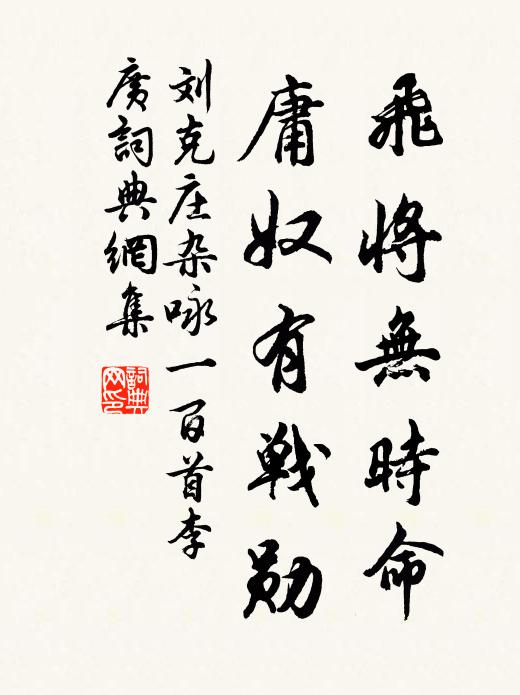 飛將無時命
庸奴有戰勛
刘克庄杂咏一百首李
广詞典網集
詞典
网印